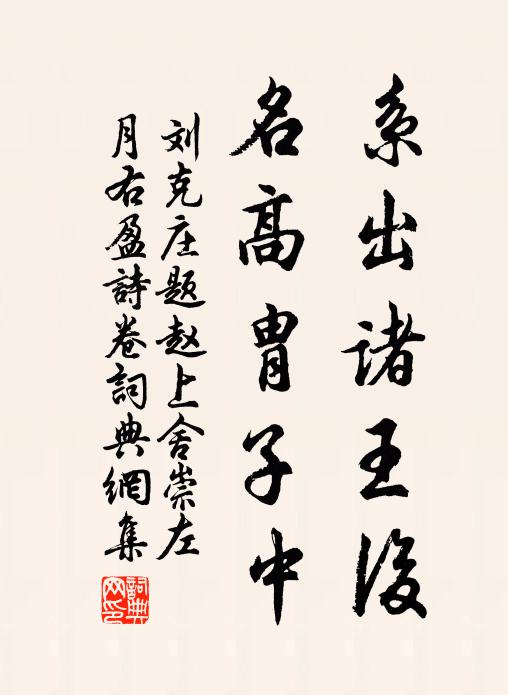 系出诸王後
名高胄子中
刘克庄题赵上舍崇左
月右盈詩卷詞典網集
詞典网印